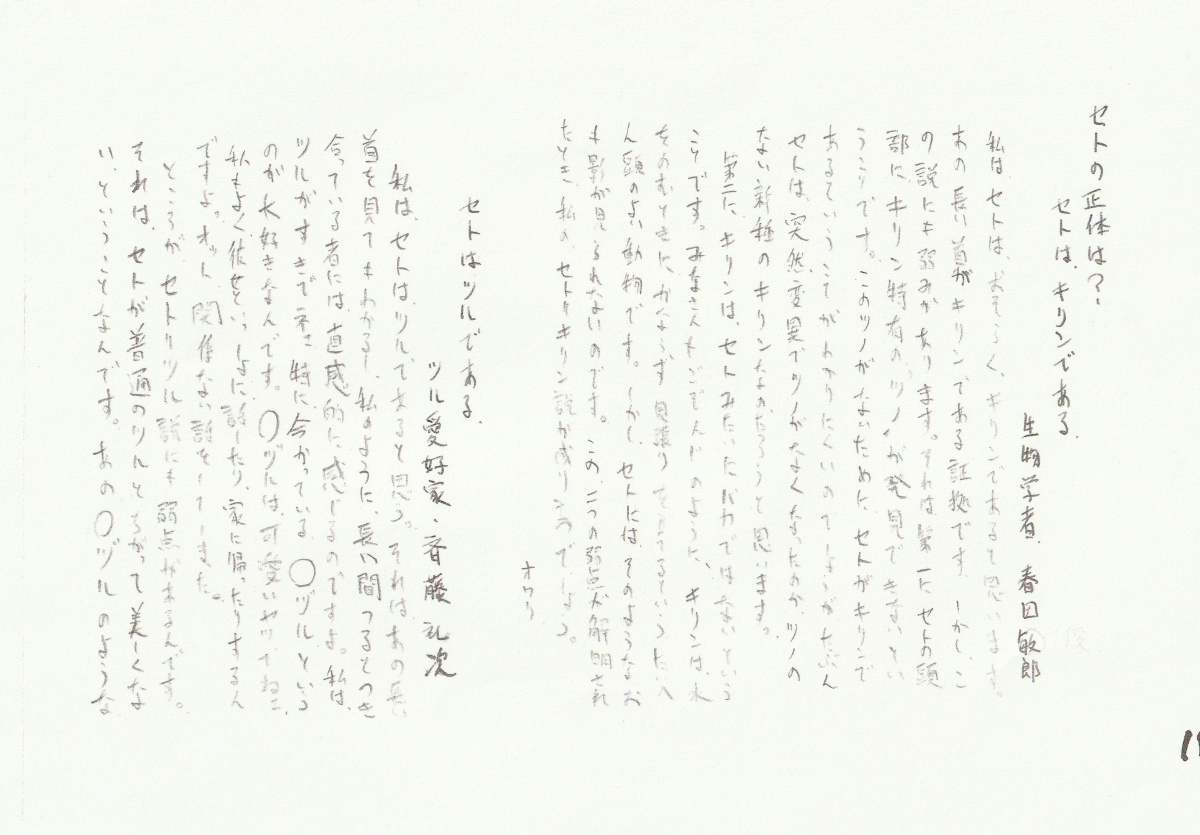 セトの正体は？
セトは、キリンである
生物学者 春田敏郎
私は、セトは、おそらく、キリンであると思います。
あの長い首がキリンである証拠です。しかし、こ
の説にも弱みがあります。それは第一にセトの頭
部に、キリン特有の"ツノ"が発見できないとい
うことです。このツノがないために、セトがキリンで
あるていうことがわかりにくいのでしょうが、たぶん
セトは、突然変異でツノがなくなったか、ツノの
ない新種のキリンなのだろうと思います。
第二に、キリンは、セトみたいにバカではないという
ことです。みなさんもごぞんじのように、キリンは、水
をのむときに、かならず見張りをたてるという
ん頭のよい動物です。しかし、セトには、そのようなお
も影が見られないのです。この二つの弱点が解明され
たとき、私の、セト＝キリン説が成りたつのでしょう。
オワリ
セトはツルである。
ツル愛好家・斉藤礼次
私は、セトは、ツルであると思う。それは、あの長い
首を見てもわかるし、私のように、長い間つるとつき
合っている者には、直感的に、感じるのですよ。私は、
ツルがすきでネェ 特に、今かっている、〇ヅルという
のが大好きなんです。〇ヅルは、可愛いヤツでねェ、
私もよく彼女といっしょに話したり、家に帰ったりするん
ですよ。オット、関係ない話をしてしまった。
ところが、セト＝ツル説にも弱点があるんです。
それは、セトが普通のツルとちがって美しくな
い、ということなんです。あの〇ヅルのような